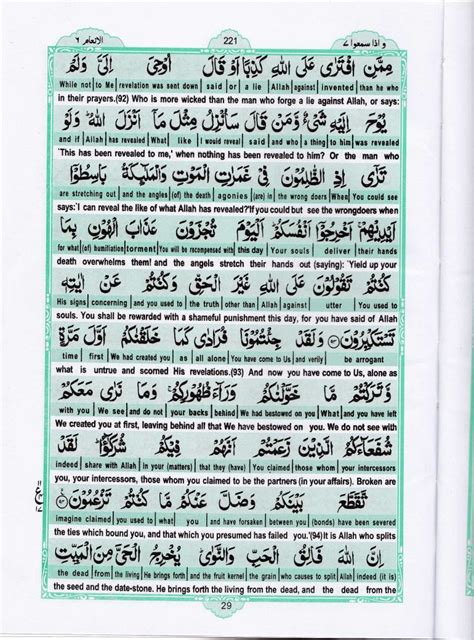 الانعام ٦ 221 و اذا سمعوا ٧
مِمَّنِ افْتَرٰى عَلَى اللّٰهِ كَذِبًا اَوْ قَالَ اُوْحِىَ اِلَىَّ وَلَمْ
While not to Me revelation was sent down said or a lie Allah against invented than he who
in their prayers.(92) Who is more wicked than the man who forge a lie against Allah, or says:
يُوْحَ اِلَيْهِ شَىْءٌ وَّمَنْ قَالَ سَاُنْزِلُ مِثْلَ مَاۤ اَنْزَلَ اللّٰهُ ؕ وَلَوْ
and if Allah has revealed What like I would reveal said and who a thing to him was revealed
'This has been revealed to me,' when nothing has been revealed to him? Or the man who
تَرٰٓى اِذِ الظّٰلِمُوْنَ فِىْ غَمَرٰتِ الْمَوْتِ وَالْمَلٰٓئِكَةُ بَاسِطُوْۤا
are stretching out and the angles (of) the death agonies (are) in the wrong doers When you could see
says:'I can reveal the like of what Allah has revealed?'If you could but see the wrongdoers when
اَيْدِيْهِمْ ۚ اَخْرِجُوْۤا اَنْفُسَكُمْ ؕ اَلْيَوْمَ تُجْزَوْنَ عَذَابَ الْهُوْنِ بِمَا
for what (of) humiliation torment You will be recompensed with this day Your souls deliver their hands
death overwhelms them! and the angels stretch their hands out (saying): 'Yield up your
كُنْتُمْ تَقُوْلُوْنَ عَلَى اللّٰهِ غَيْرَ الْحَقِّ وَكُنْتُمْ عَنْ اٰيٰتِهٖ
His signs concerning and you used to the truth other than Allah against utter You used to
souls. You shall be rewarded with a shameful punishment this day, for you have said of Allah
تَسْتَكْبِرُوْنَ ﴿۹۳﴾ وَلَقَدْ جِئْتُمُوْنَا فُرَادٰى كَمَا خَلَقْنٰكُمْ اَوَّلَ مَرَّةٍ
time first We had created you as all alone You have come to Us and verily be arrogant
what is untrue and scorned His revelations.(93) And now you have come to Us, alone as
وَّتَرَكْتُمْ مَّا خَوَّلْنٰكُمْ وَرَآءَ ظُهُوْرِكُمْ ۚ وَمَا نَرٰى مَعَكُمْ
with you We see and do not your backs behind We had bestowed on you What and you have left
We created you at first, leaving behind all that We have bestowed on you. We do not see with
شُفَعَآءَكُمُ الَّذِيْنَ زَعَمْتُمْ اَنَّهُمْ فِيْكُمْ شُرَكٰٓؤُا ؕ لَقَدْ
indeed share with Allah in your (matters) that they (have) You claimed those whom your intercessors
you, your intercessors, those whom you claimed to be the partners (in your affairs). Broken are
تَّقَطَّعَ بَيْنَكُمْ وَضَلَّ عَنْكُمْ مَّا كُنْتُمْ تَزْعُمُوْنَ ﴿۹۴﴾
imagine claimed you used to what you and have forsaken between you (bonds) have been severed
the ties which bound you, and that which you presumed has failed you.'(94)It is Allah who splits
اِنَّ اللّٰهَ فَالِقُ الْحَبِّ وَالنَّوٰى ؕ يُخْرِجُ الْحَىَّ مِنَ الْمَيِّتِ
the dead from the living He brings forth and the fruit kernel the grain who causes to split Allah indeed (it is)
the seed and the date-stone. He brings forth the living from the dead, and the dead from the
29